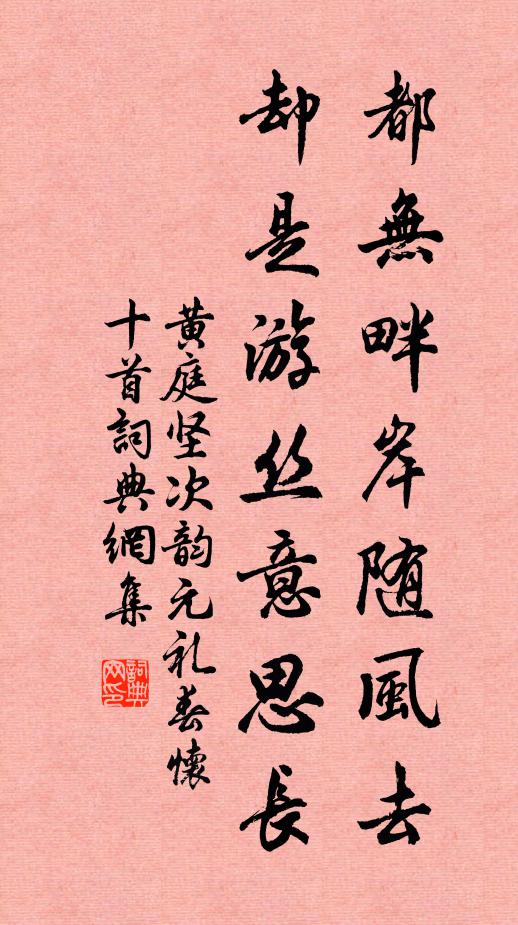 都無畔岸随風去
却是游丝意思長
黄庭坚次韵元礼春懷
十首詞典網集
詞典網印